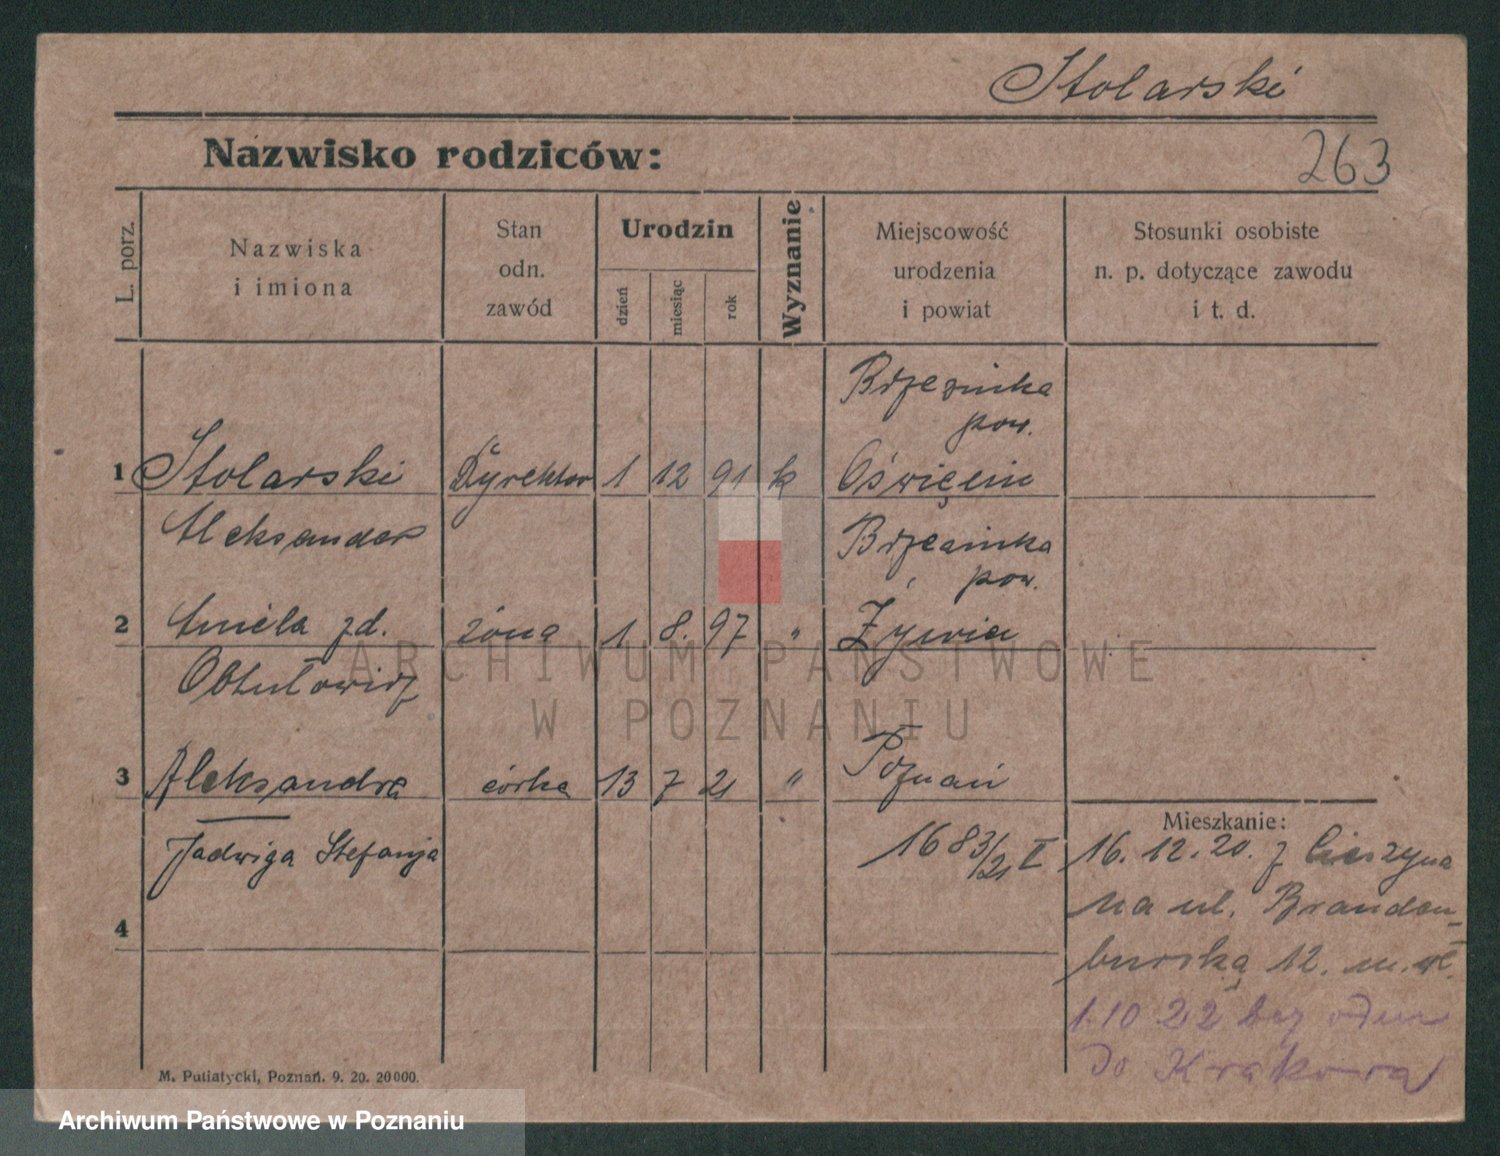 Stolarski
Nazwisko rodziców:
263
L. porz.
Nazwiska
i imiona
Stan
odn.
zawód
Urodzin
dzień
miesiąc
rok
Wyznanie
Miejscowość
urodzenia
i powiat
Stosunki osobiste
n. p. dotyczące zawodu
i t. d.
Brzezinka
pow.
1 Stolarski Dyrektor 1 12 91 k Oświęcim
Aleksander
Brzezinka
pow.
2 Aniela zd. żona 1 8. 97 " Żywiec
Obtułowicz
3 Aleksandra córka 13 7 21 " Poznań
Jadwiga Stefanja
1683/21 I
4
Mieszkanie:
16. 12. 20. z Cieszyna
na ul. Branden-
burską 12. m.
1.10 22 bez
do Krakowa
M. Putiatycki, Poznań. 9. 20. 20000.
ARCHIWUM PAŃSTWOWE
W POZNANIU
Archiwum Państwowe w Poznaniu